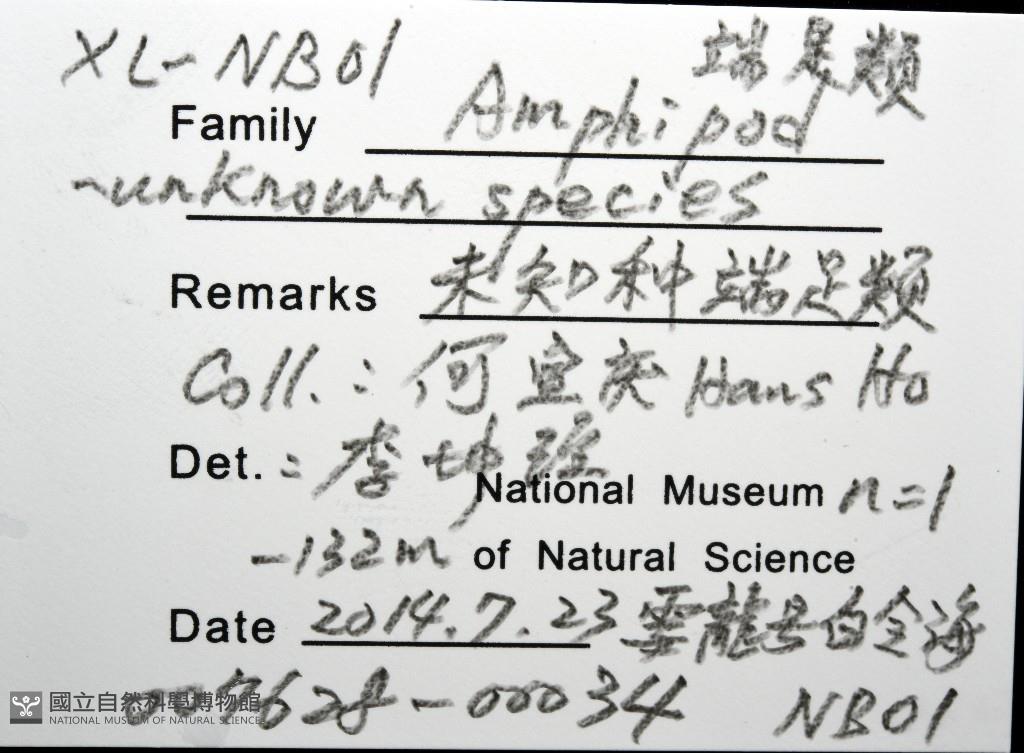 XL-NB01 端足類
Family Amphipod
-unknown species
Remarks 未知种端足類
Coll.: 何宣庆 Hans Ho
Det.: 李坤
National Museum n=1
-132m of Natural Science
Date 2014.7.23 雪龍号白令海
7628-00034 NB01
國立自然科學博物館
NATIONAL MUSEUM OF NATURAL SCIENCE